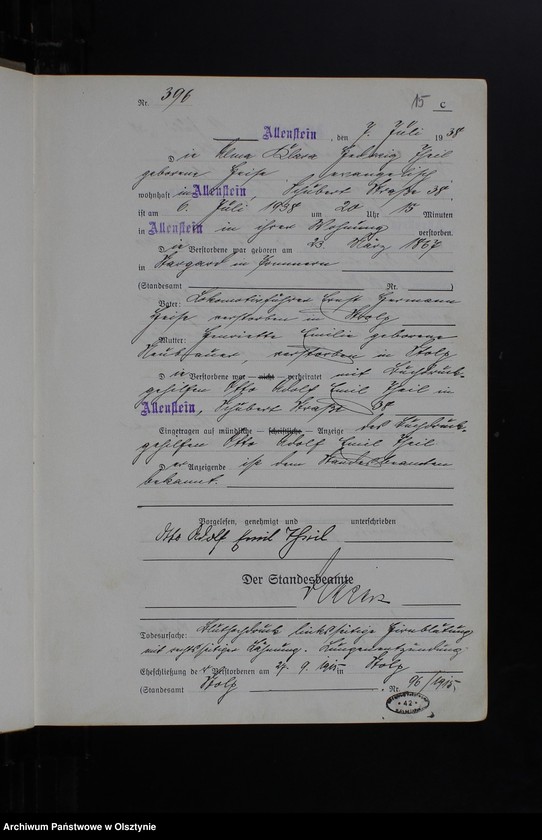 Nr. 396
15 C
Allenstein, den 7. Juli 1938
Die Alma Klara Hedwig Theil
geborene Heise, evangelisch,
wohnhaft in Allenstein, Schubert Straße 38,
ist am 6. Juli 1938 um 20 Uhr 15 Minuten
in Allenstein in ihrer Wohnung verstorben.
Die Verstorbene war geboren am 23. März 1867
in Stargard in Pommern
(Standesamt Nr. )
Vater: Lokomotivführer Ernst Hermann
Heise, verstorben in Stolp
Mutter: Henriette Emilie geborene
Neubauer, verstorben in Stolp
Die Verstorbene war — nicht — verheiratet mit Buchdruck-
gehilfen Otto Adolf Emil Theil in
Allenstein, Schubert Straße 38
Eingetragen auf mündliche — schriftliche — Anzeige des Buchdruck-
gehilfen Otto Adolf Emil Theil
Der Anzeigende ist dem Standesbeamten
bekannt.
Vorgelesen, genehmigt und unterschrieben
Otto Adolf Emil Theil
Der Standesbeamte
Todesursache: Bluthochdruck linksseitige Hirnblutung
mit rechtsseitiger Lähmung. Lungenentzündung.
Eheschließung der Verstorbenen am 27. 9. 1915 in Stolp
(Standesamt Stolp Nr. 96/1915)
42
Archiwum Państwowe w Olsztynie